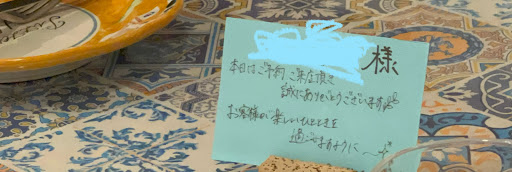 様
本日はご予約ご来店頂き
誠にありがとうございます
お客様の楽しいひとときを
過ごせますように